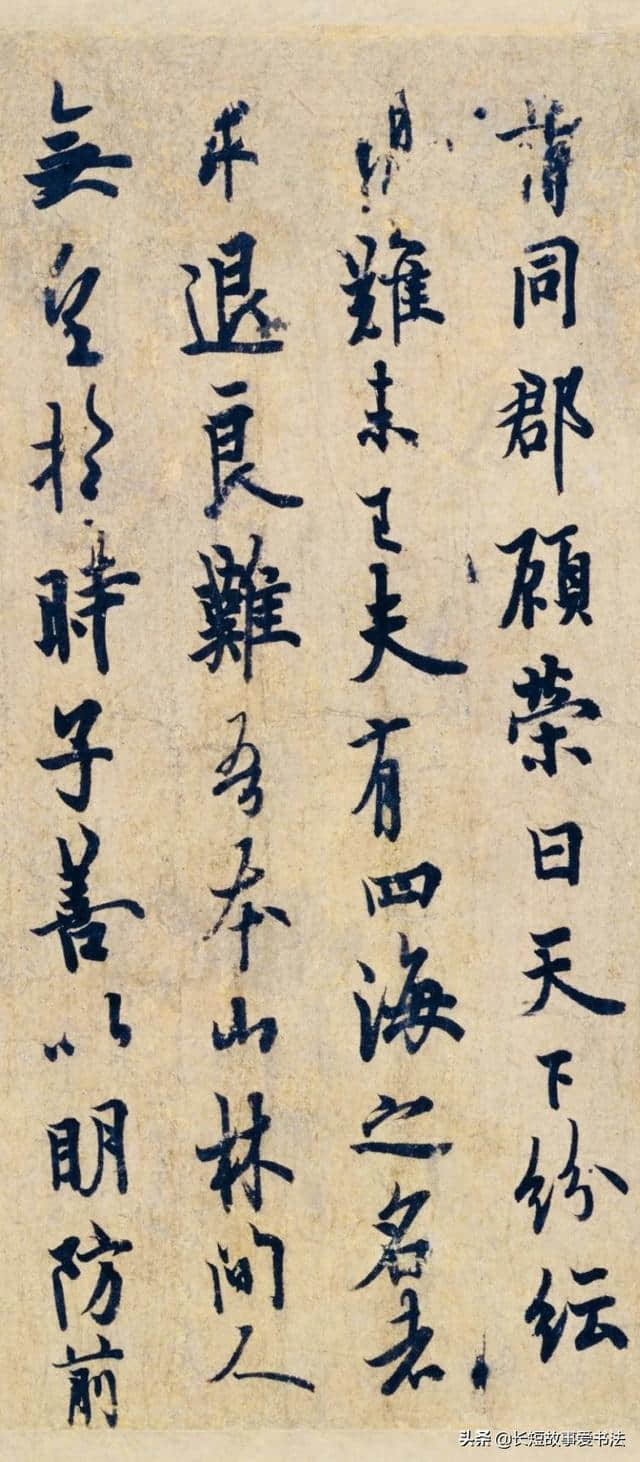 同郡顧榮曰天下紛紜
難未已夫有四海之名者
求退良難吾本山林間人
無望於時子善以明防前
头条 @长短故事爱书法